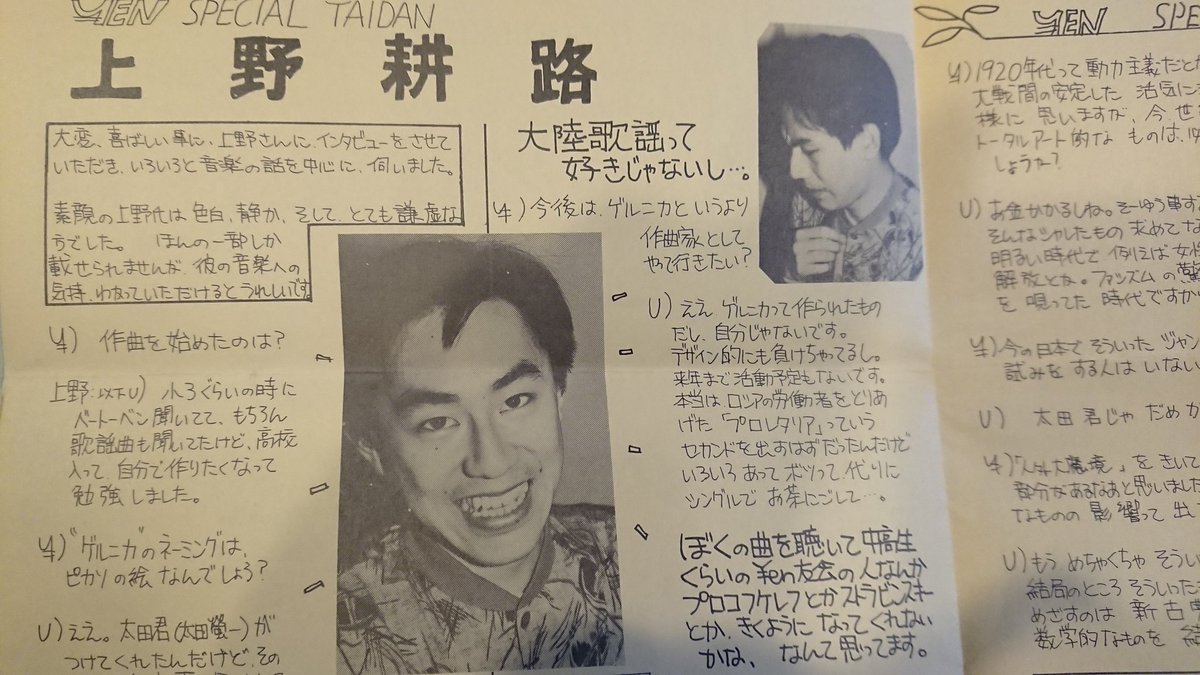 YEN SPECIAL TAIDAN
上野耕路
大変、喜ばしい事に、上野さんに、インタビューをさせて
いただき、いろいろと音楽の話を中心に、伺いました。
素顔の上野氏は色白、静か、そして、とても謙虚な
方でした。 ほんの一部しか
載せられませんが、彼の音楽への
気持、わかっていただけるとうれしいです。
¥) 作曲を始めたのは?
上野:以下U) 小3ぐらいの時に
ベートーベン聞いてて、もちろん
歌謡曲も聞いてたけど、高校
入って、自分で作りたくなって
勉強しました。
¥)“ゲルニカ”のネーミングは、
ピカソの絵なんでしょう?
U)ええ。太田君(太田螢一)が
つけてくれたんだけど、その
大陸歌謡って
好きじゃないし…。
¥)今後は、ゲルニカというより
作曲家として
やって行きたい?
U)ええ、ゲルニカって作られたもの
だし、自分じゃないです。
デザイン的にも負けちゃってるし。
来年まで活動予定もないです。
本当は、ロシアの労働者をとりあ
げた「プロレタリア」っていう
セカンドを出すはずだったんだけど
いろいろあってボツって、代りに
シングルで お茶にごして…。
ぼくの曲を聴いて中高生
くらいの¥en友会の人なんか
プロコフィエフとかストラビンスキー
とか、きくように なってくれない
かな、 なんて思ってます。
YEN SPE
¥)1920年代って動力主義だとか
大戦間の安定した 活気に
様に 思いますが、今、世
トータルアート的な ものは、
しょうか?
U)お金かかるしね。そーゆう事する
そんなシャレたもの 求めてな
明るい時代で 例えば女性
解放とか。ファシズムの
を 唄ってた 時代ですか
¥)今の日本で そういった ジャン
試みを する人は いない
U) 太田君じゃ だめか
¥)「人外大魔境」を きいて
部分があるなあと思いました
なものの 影響って 出
U)もう めちゃくちゃ そうい
結局のところ そういった
めざすのは 新古典
数学的なものを